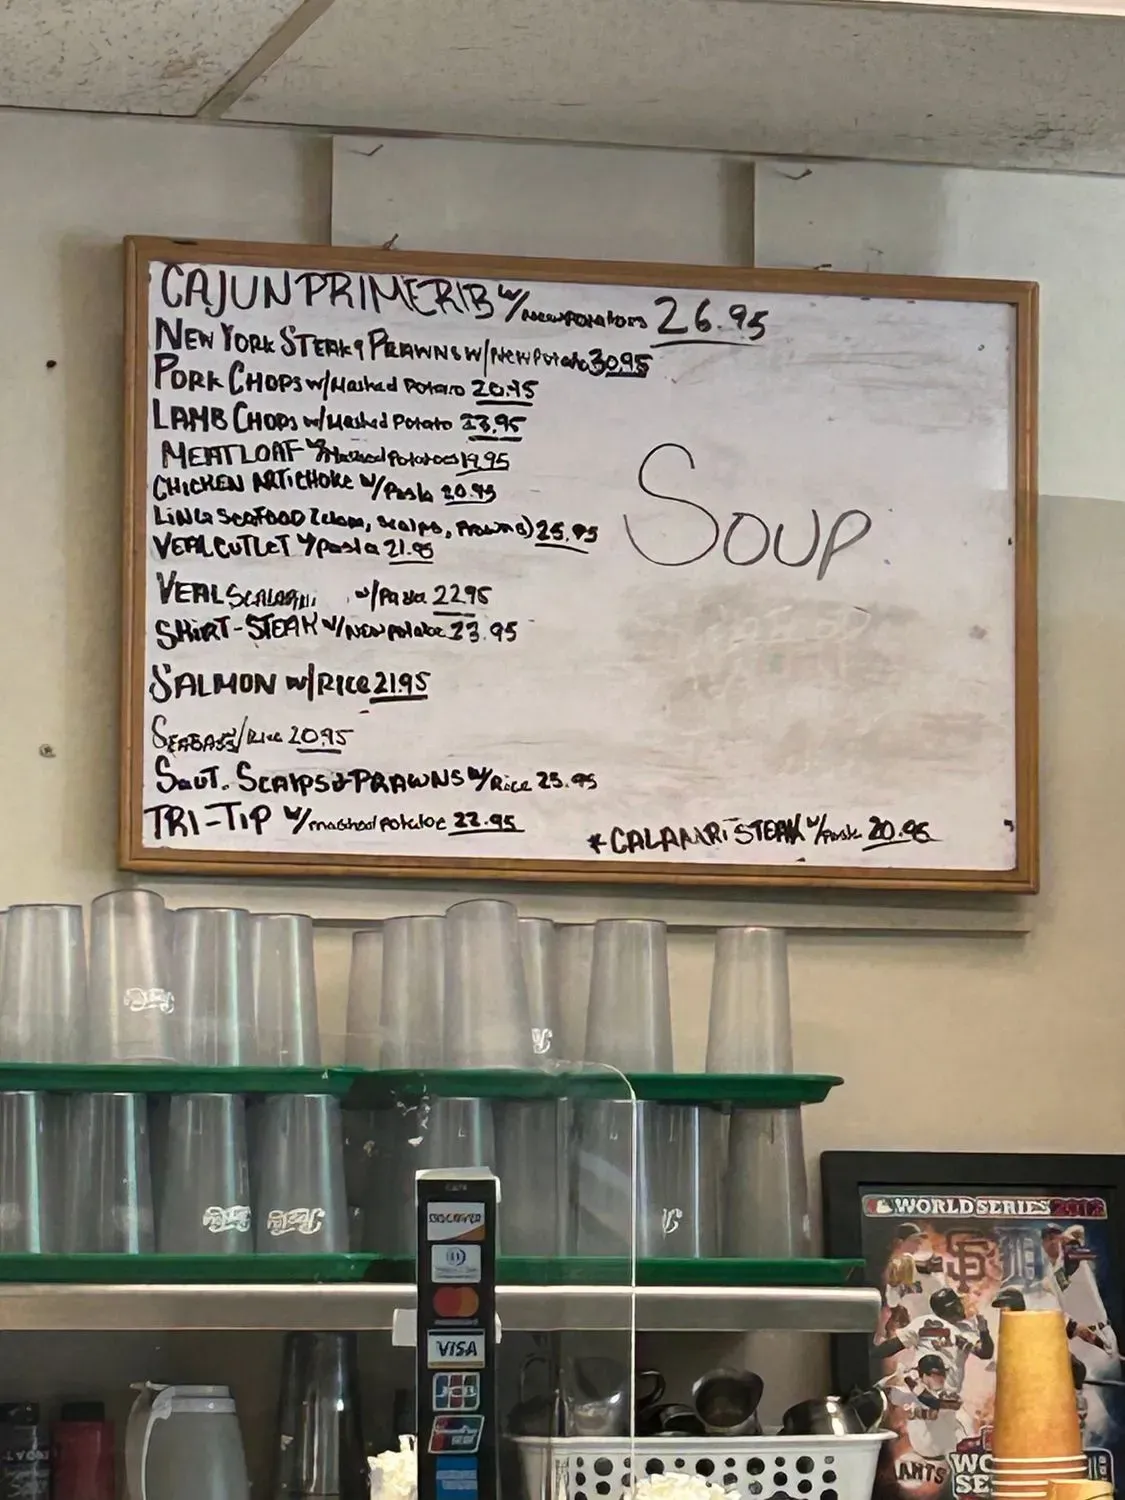 CAJUN PRIME RIB w/New Potatoes 26.95
NEW YORK STEAK & PRAWNS w/New Potato 30.95
PORK CHOPS w/Mashed Potato 20.95
LAMB CHOPS w/Mashed Potato 23.95
MEATLOAF w/Mashed Potatoes 19.95
CHICKEN ARTICHOKE w/Pasta 20.95
LING SEAFOOD (clam, scalps, Prawns) 25.95
VEAL CUTLET w/pasta 21.95
VEAL w/Pasta 22.95
SKIRT-STEAK w/NEW potatoe 23.95
SALMON w/RICE 21.95
SEABASS/Rice 20.95
SauT. SCALPS & PRAWNS w/Rice 25.95
TRI-TIP w/mashed potatoe 22.95
*CALAMRI STEAK w/Pasta 20.95
SOUP
DISCOVER
VISA
JCB
WORLD SERIES 2012
SF
D